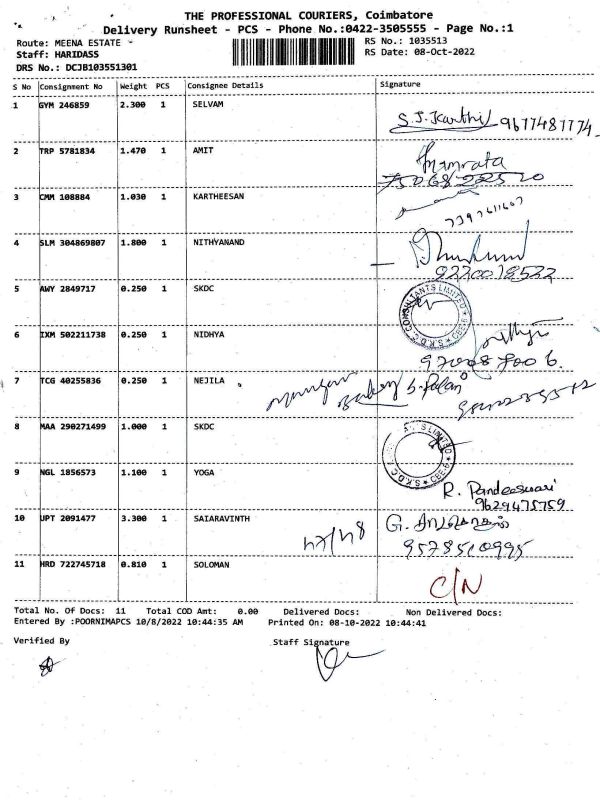 THE PROFESSIONAL COURIERS, Coimbatore
Delivery Runsheet - PCS - Phone No.:0422-3505555 - Page No.:1
Route: MEENA ESTATE - RS No.: 1035513
Staff: HARIDASS RS Date: 08-Oct-2022
DRS No.: DCJB103551301
S No Consignment No Weight PCS Consignee Details Signature
1 GYM 246859 2.300 1 SELVAM
S.J.Karthi 9677487774
2 TRP 5781834 1.470 1 AMIT
Namrata
3 CMM 108884 1.030 1 KARTHEESAN
7397611607
4 SLM 304869807 1.800 1 NITHYANAND
5 AWY 2849717 0.250 1 SKDC
S.K.D.C. CONSULTANTS LIMITED CBE-6
6 IXM 502211738 0.250 1 NIDHYA
7 TCG 40255836 0.250 1 NEJILA
8 MAA 290271499 1.000 1 SKDC
9 NGL 1856573 1.100 1 YOGA
R. Pandeeswari
9629475759
10 UPT 2091477 3.300 1 SAIARAVINTH
47/48 G.
9578510995
11 HRD 722745718 0.810 1 SOLOMAN
C/N
Total No. Of Docs: 11 Total COD Amt: 0.00 Delivered Docs: Non Delivered Docs:
Entered By :POORNIMAPCS 10/8/2022 10:44:35 AM Printed On: 08-10-2022 10:44:41
Verified By Staff Signature